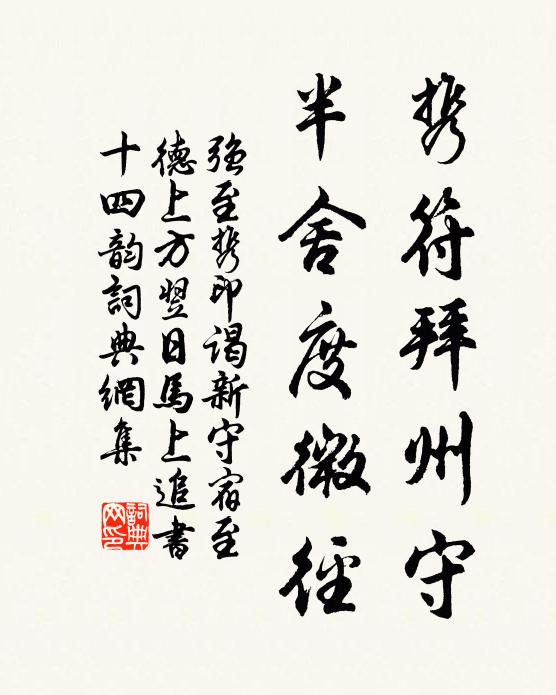 携符拜州守
半舍度微径
强至携印谒新守宿至
德上方翌日馬上追書
十四韵詞典網集
詞典
网印